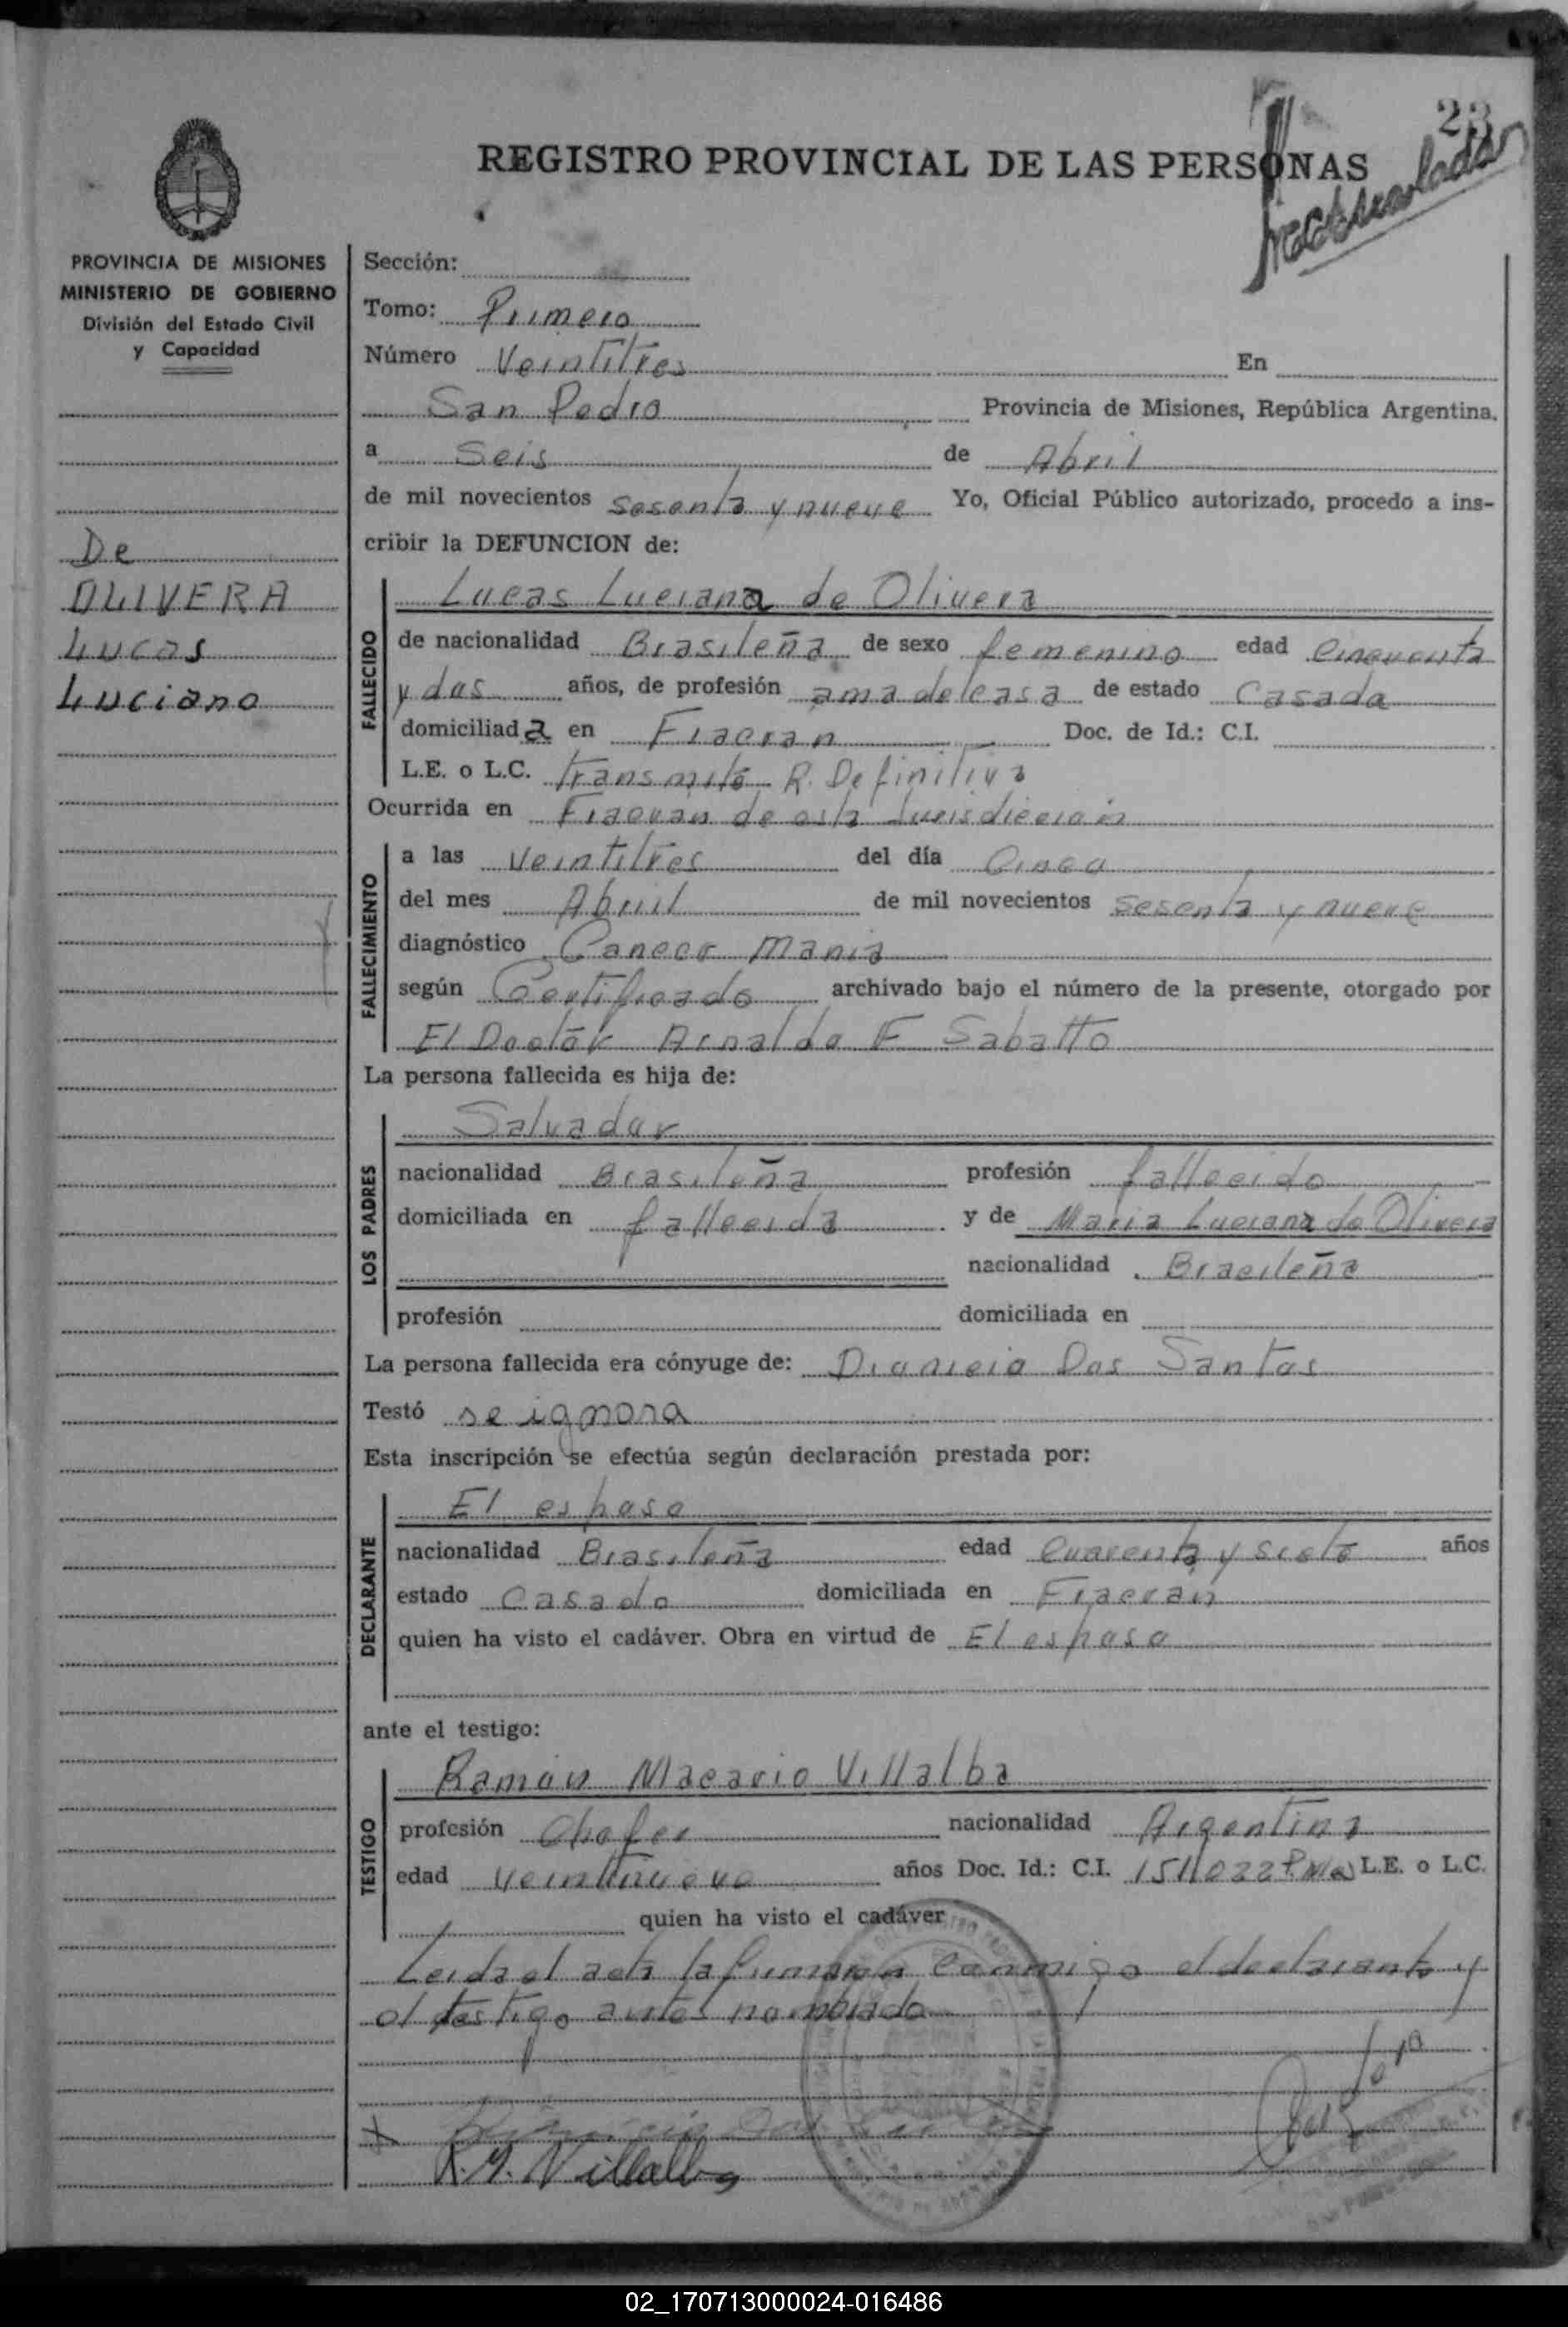 23
REGISTRO PROVINCIAL DE LAS PERSONAS
PROVINCIA DE MISIONES
MINISTERIO DE GOBIERNO
División del Estado Civil
y Capacidad
De
OLIVERA
Lucas
Luciano
Sección:
Tomo: Primero
Número Veintitres En
San Pedro Provincia de Misiones, República Argentina.
a Seis de Abril
de mil novecientos sesenta y nueve Yo, Oficial Público autorizado, procedo a ins-
cribir la DEFUNCION de:
FALLECIDO
Lucas Luciana de Olivera
de nacionalidad Brasileña de sexo femenino edad Cincuenta
y dos años, de profesión ama de casa de estado Casada
domiciliada en Fracran Doc. de Id.: C.I.
L.E. o L.C. Transmite R. Definitiva
Ocurrida en Fracran de esta Jurisdiccion
FALLECIMIENTO
a las Veintitres del día Cinco
del mes Abril de mil novecientos sesenta y nueve
diagnóstico Cancer
según Certificado archivado bajo el número de la presente, otorgado por
El Doctor Arnaldo F Sabatto
La persona fallecida es hija de:
LOS PADRES
Salvador
nacionalidad Brasileña profesión fallecido
domiciliada en fallecida y de Maria Luciana de Olivera
nacionalidad Brasileña
profesión domiciliada en
La persona fallecida era cónyuge de: Dionicio Dos Santos
Testó se ignora
Esta inscripción se efectúa según declaración prestada por:
DECLARANTE
El esposo
nacionalidad Brasileña edad Cuarenta y siete años
estado Casado domiciliada en Fracran
quien ha visto el cadáver. Obra en virtud de El esposo
ante el testigo:
TESTIGO
Ramón Macario Villalba
profesión Chofer nacionalidad Argentina
edad veintinueve años Doc. Id.: C.I. L.E. o L.C.
quien ha visto el cadáver
Leida el acta la firman Conmigo el declarante y
el testigo antes nombrado
R. M. Villalba
02_170713000024-016486